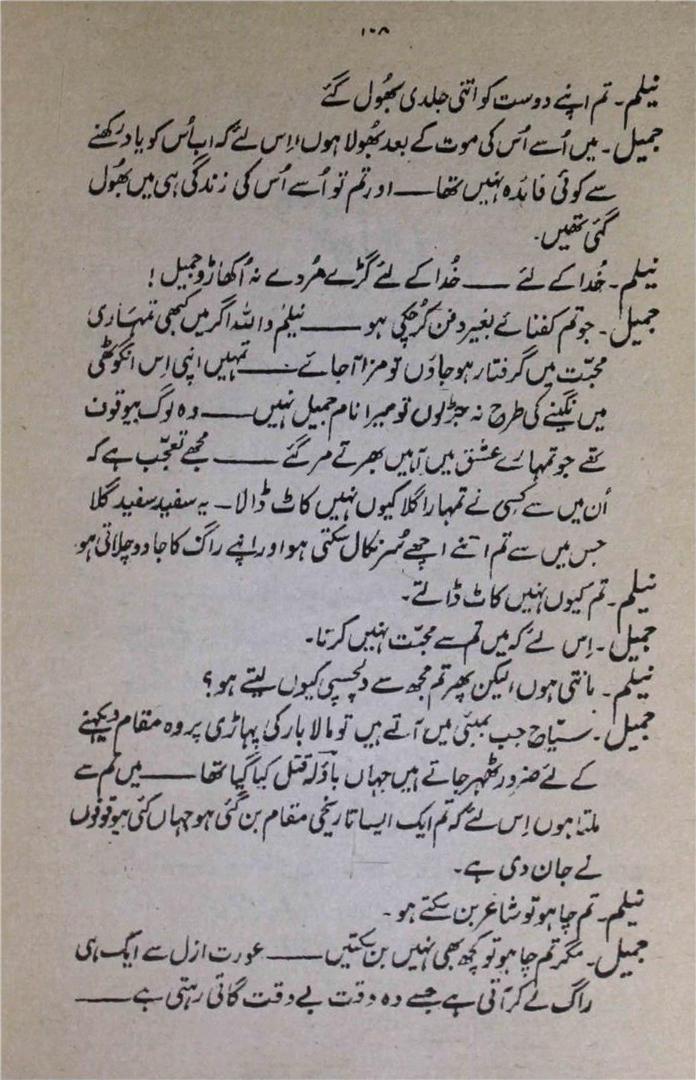 ۱۰۸
نیلم۔ تم اپنے دوست کو اتنی جلدی بھُول گئے
جمیل۔ میں اُسے اُس کی موت کے بعد بھُولا ہوں، اِس لئے کہ اب اُس کو یاد رکھنے
سے کوئی فائدہ نہیں تھا ــــــ اور تم تو اُسے اُس کی زندگی ہی میں بھُول
گئی تھیں۔
نیلم۔ خُدا کے لئے ــــــ خُدا کے لئے گڑے مُردے نہ اُکھاڑو جمیل!
جمیل۔ جو تم کفنائے بغیر دفن کر چکی ہو ــــــ نیلم واللہ اگر میں کبھی تمہاری
محبّت میں گرفتار ہو جاؤں تو مزا آ جائے ــــــ تمہیں اپنی اِس انگوٹھی
میں نگینے کی طرح نہ جڑ لوں تو میرا نام جمیل نہیں ــــــ وہ لوگ بیوقوف
تھے جو تمہارے عشق میں آہیں بھرتے مر گئے ــــــ مجھے تعجّب ہے کہ
اُن میں سے کِسی نے تمہارا گلا کیوں نہیں کاٹ ڈالا ــ یہ سفید سفید گلا
جس میں سے تم اتنے اچھے سُر نکال سکتی ہو اور اپنے راگ کا جادو چلاتی ہو۔
نیلم۔ تم کیوں نہیں کاٹ ڈالتے۔
جمیل۔ اِس لئے کہ میں تم سے محبّت نہیں کرتا۔
نیلم۔ مانتی ہوں، لیکن پھر تم مجھ سے دلچسپی کیوں لیتے ہو؟
جمیل۔ سیّاح جب بمبئی میں آتے ہیں تو مالابار کی پہاڑی پر وہ مقام دیکھنے
کے لئے ضرور ٹھہر جاتے ہیں جہاں باؤلہ قتل کیا گیا تھا ــــــ میں تم سے
ملتا ہوں اِس لئے کہ تم ایک ایسا تاریخی مقام بن گئی ہو جہاں کئی بیوقوفوں
نے جان دی ہے۔
نیلم۔ تم چاہو تو شاعر بن سکتے ہو۔
جمیل۔ مگر تم چاہو تو کچھ بھی نہیں بن سکتیں ــــــ عورت ازل سے ایک ہی
راگ لے کر آئی ہے جسے وہ وقت بے وقت گاتی رہتی ہے ــــــ